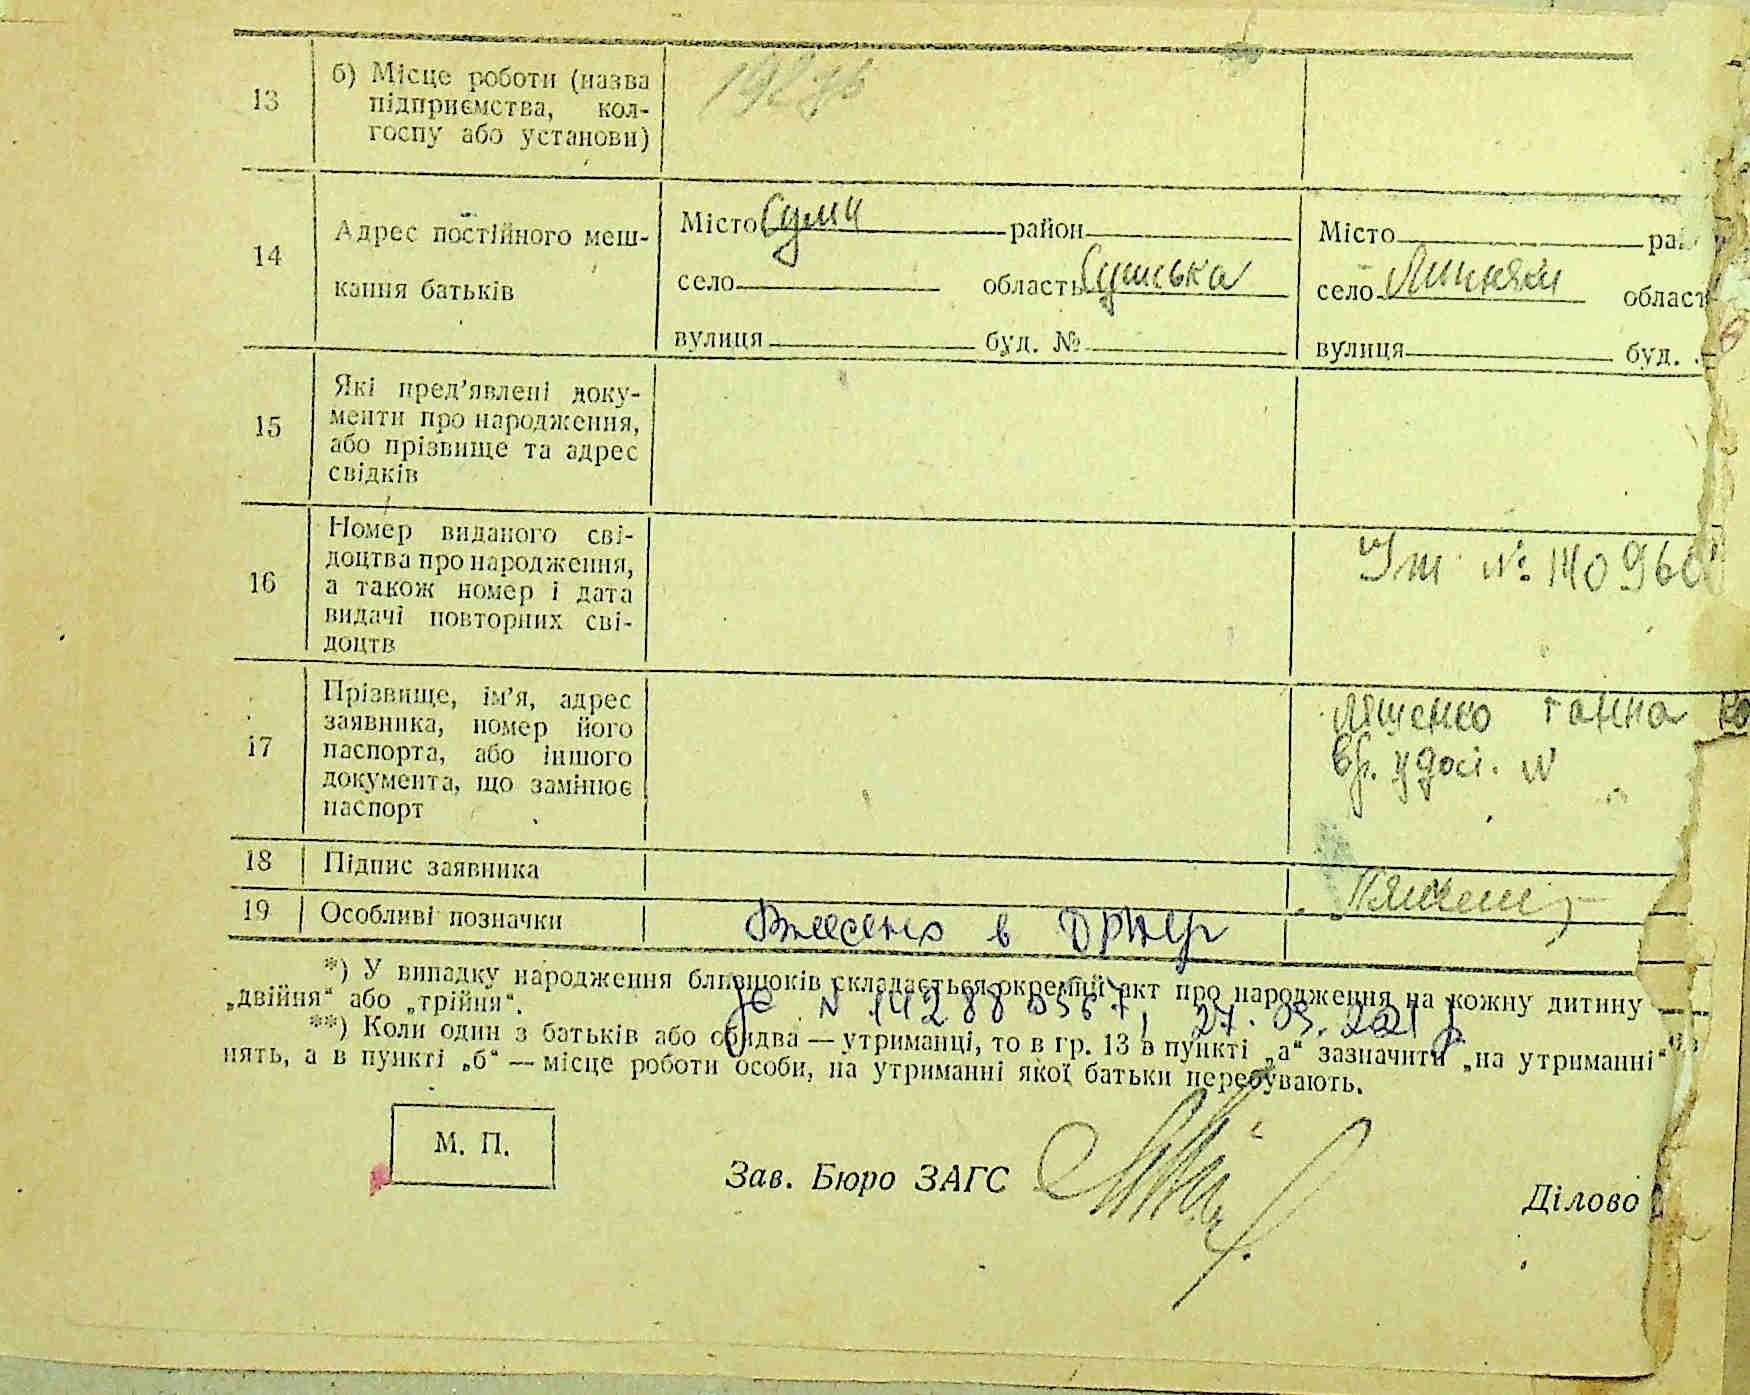 13
б) Місце роботи (назва
підприємства, кол-
госпу або установи)
14
Адрес постійного меш-
кання батьків
Місто Суми район
село область Сумська
вулиця буд. №
Місто
село област
вулиця буд.
15
Які пред'явлені доку-
менти про народження,
або прізвище та адрес
свідків
16
Номер виданого сві-
доцтва про народження,
а також номер і дата
видачі повторних сві-
доцтв
17
Прізвище, ім'я, адрес
заявника, номер його
паспорта, або іншого
документа, що замінює
паспорт
Ляшенко Ганна
вр. удост. №
18
Підпис заявника
19
Особливі позначки
Внесено в ДРАЦС
*) У випадку народження близнюків складається окремий акт про народження на кожну дитину
„двійня“ або „трійня“.
27.05.2021
**) Коли один з батьків або обидва — утриманці, то в гр. 13 в пункті „а“ зазначити „на утриманні“
нять, а в пункті „б“ — місце роботи особи, на утриманні якої батьки перебувають.
М. П.
Зав. Бюро ЗАГС
Ділово